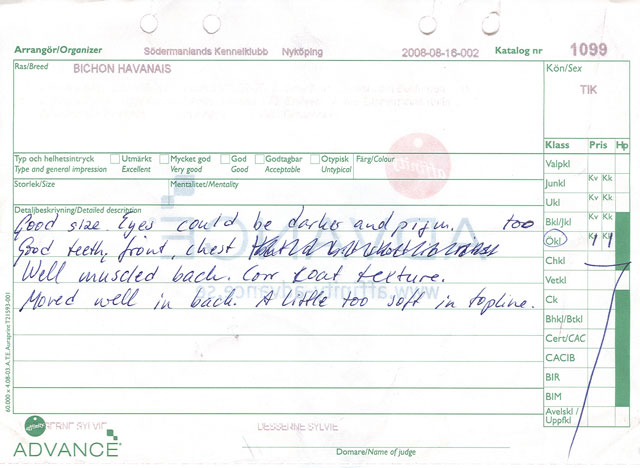 Arrangör/Organizer Södermanlands Kennelklubb Nyköping 2008-08-16-002 Katalog nr 1099
Ras/Breed BICHON HAVANAIS Kön/Sex
TIK
Klass Pris Hp
Typ och helhetsintryck Utmärkt Mycket god God Godtagbar Otypisk Färg/Colour
Type and general impression Excellent Very good Good Acceptable Untypical
Valpkl
Storlek/Size Mentalitet/Mentality
Junkl Kv Kk
Ukl Kv Kk
Detaljbeskrivning/Detailed description
Good size. Eyes could be darker and pigm. too
Bkl/Jkl Kv Kk
Good teeth, front, chest
Ökl Kv Kk 1 1
Well muscled back. Corr coat texture.
Chkl
Vetkl
Moved well in back. A little too soft in topline.
Ck
Bhkl/Btkl
Cert/CAC
CACIB
BIR
BIM
Avelskl/
Uppfkl
60.000 x 4.08-03 A.T.E. Auraprint T21593-001
affinity
ADVANCE
www.affinity-advance.se
affinity
SERNE SYLVIE DESSERNE SYLVIE
ADVANCE
Domare/Name of judge